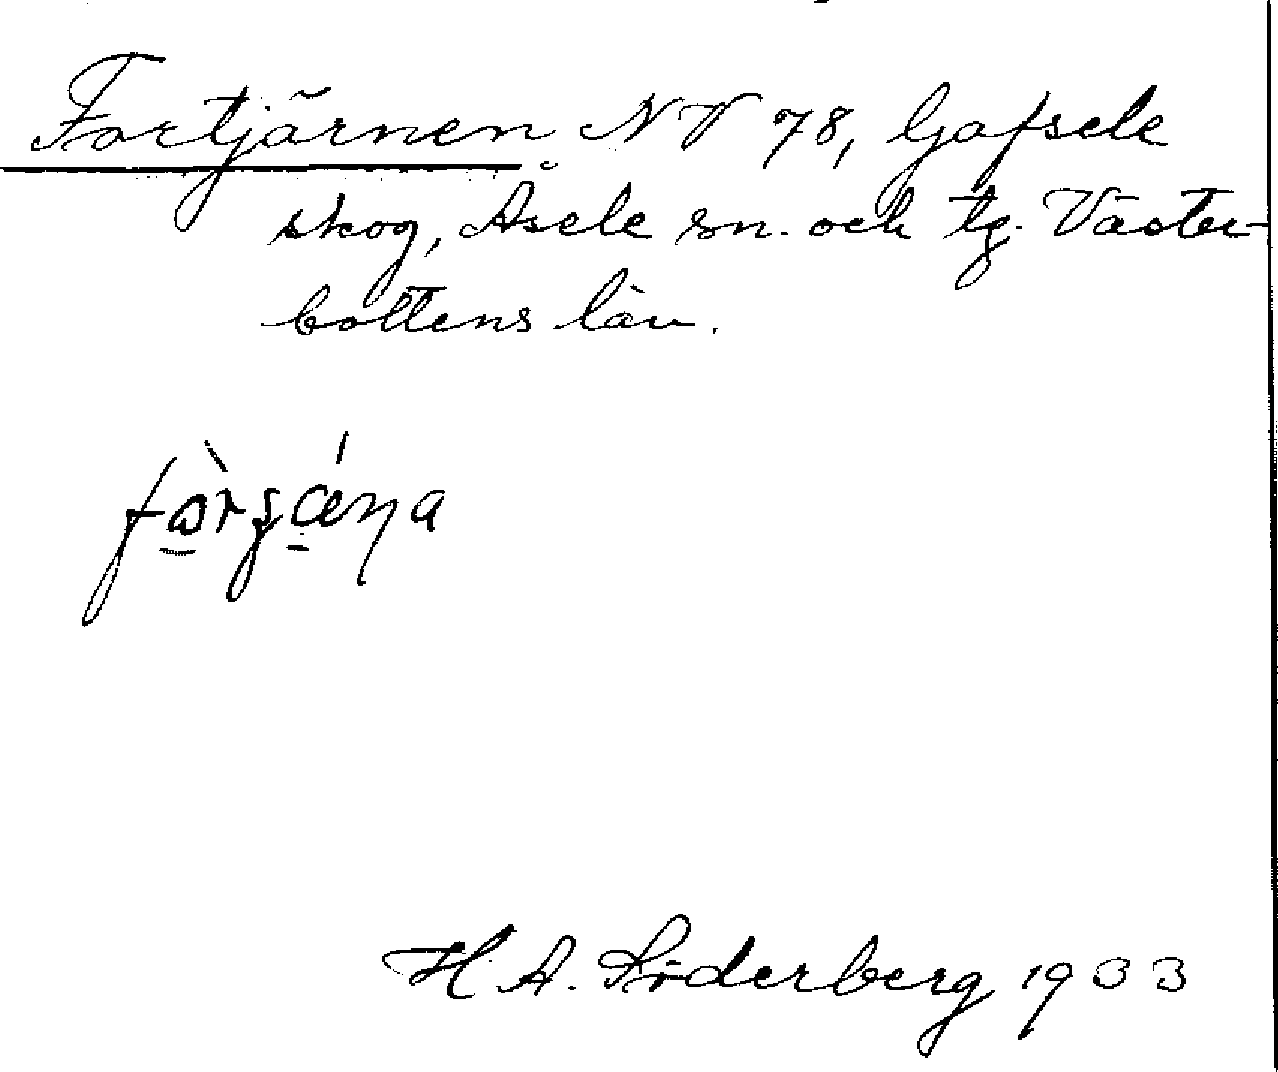 Fortjärnen NV 78, Gafsele
skog, Åsele sn. och tg. Väster-
bottens län.
H. A. Söderberg 1933